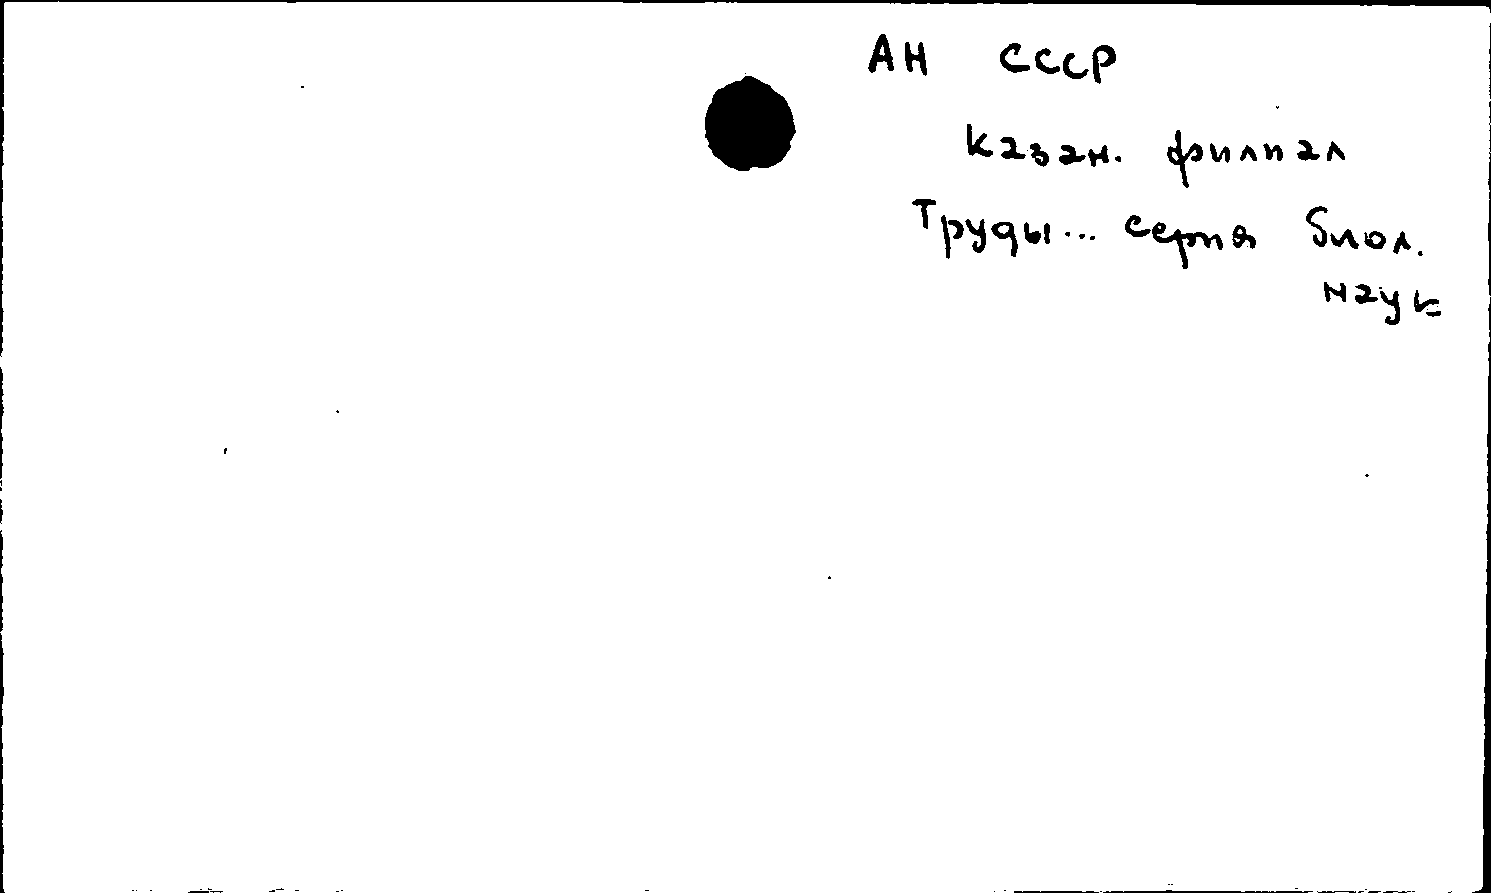 АН СССР
Казан. филиал
Труды... серия биол.
наук